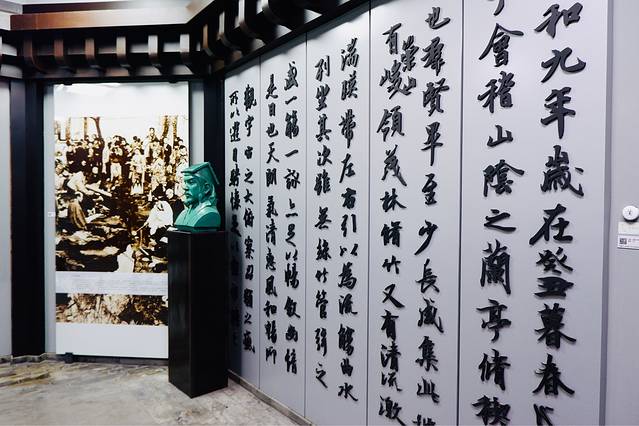 和九年歲在癸丑暮春
于會稽山陰之蘭亭脩稧
也群賢畢至少長咸集此
有崇山峻領茂林脩竹又有清流激
湍暎帶左右引以為流觴曲水
列坐其次雖無絲竹管弦之
盛一觴一詠亦足以暢敘幽情
是日也天朗氣清惠風和暢仰
觀宇宙之大俯察品類之盛
所以遊目騁懷足以極視聽之